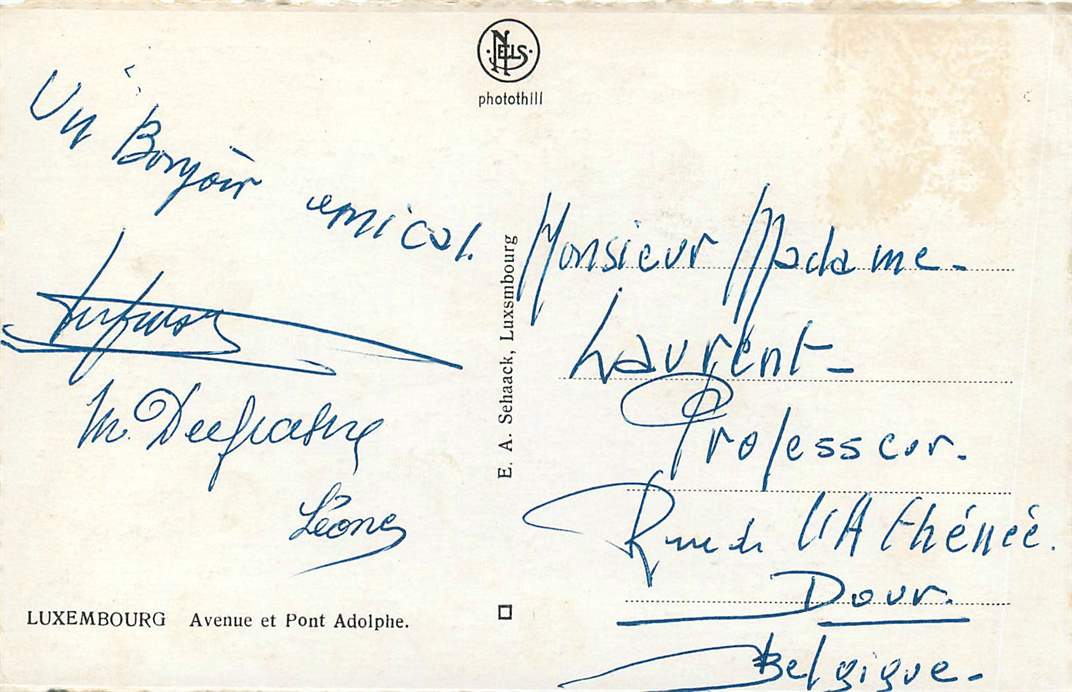 NELS
photothill
Un Bonjoir amical.
M.
Léone
LUXEMBOURG Avenue et Pont Adolphe.
E. A. Schaack, Luxembourg
Monsieur Madame.
Laurent
Professeur.
Rue de l'Athénée.
Dour.
Belgique.